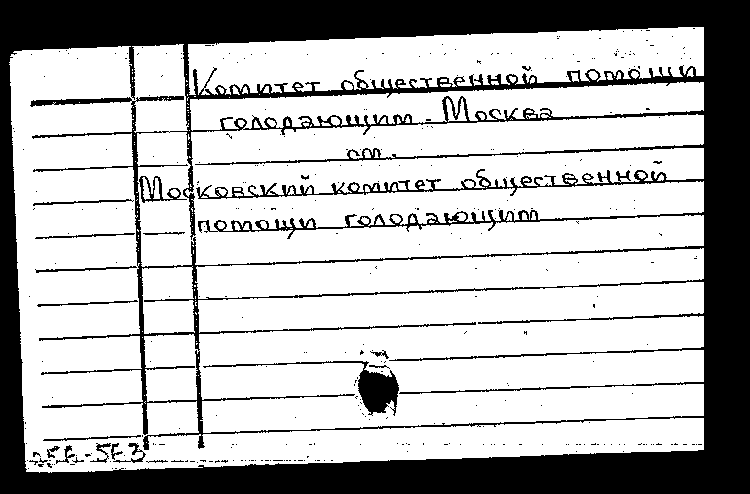 Комитет общественной помощи
голодающим. Москва
см.
Московский комитет общественной
помощи голодающим